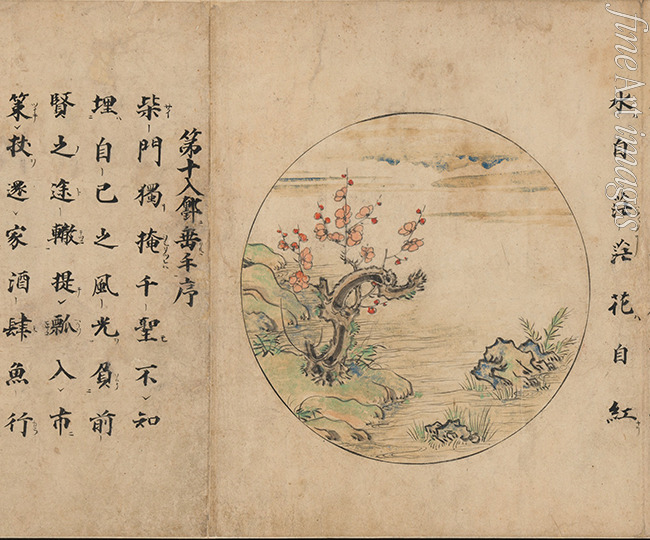 水自茫茫花自紅
第十入鄽垂手序
柴門獨掩千聖不知
埋自已之風光負前
賢之途轍提瓢入市
策杖還家酒肆魚行
fine Art images